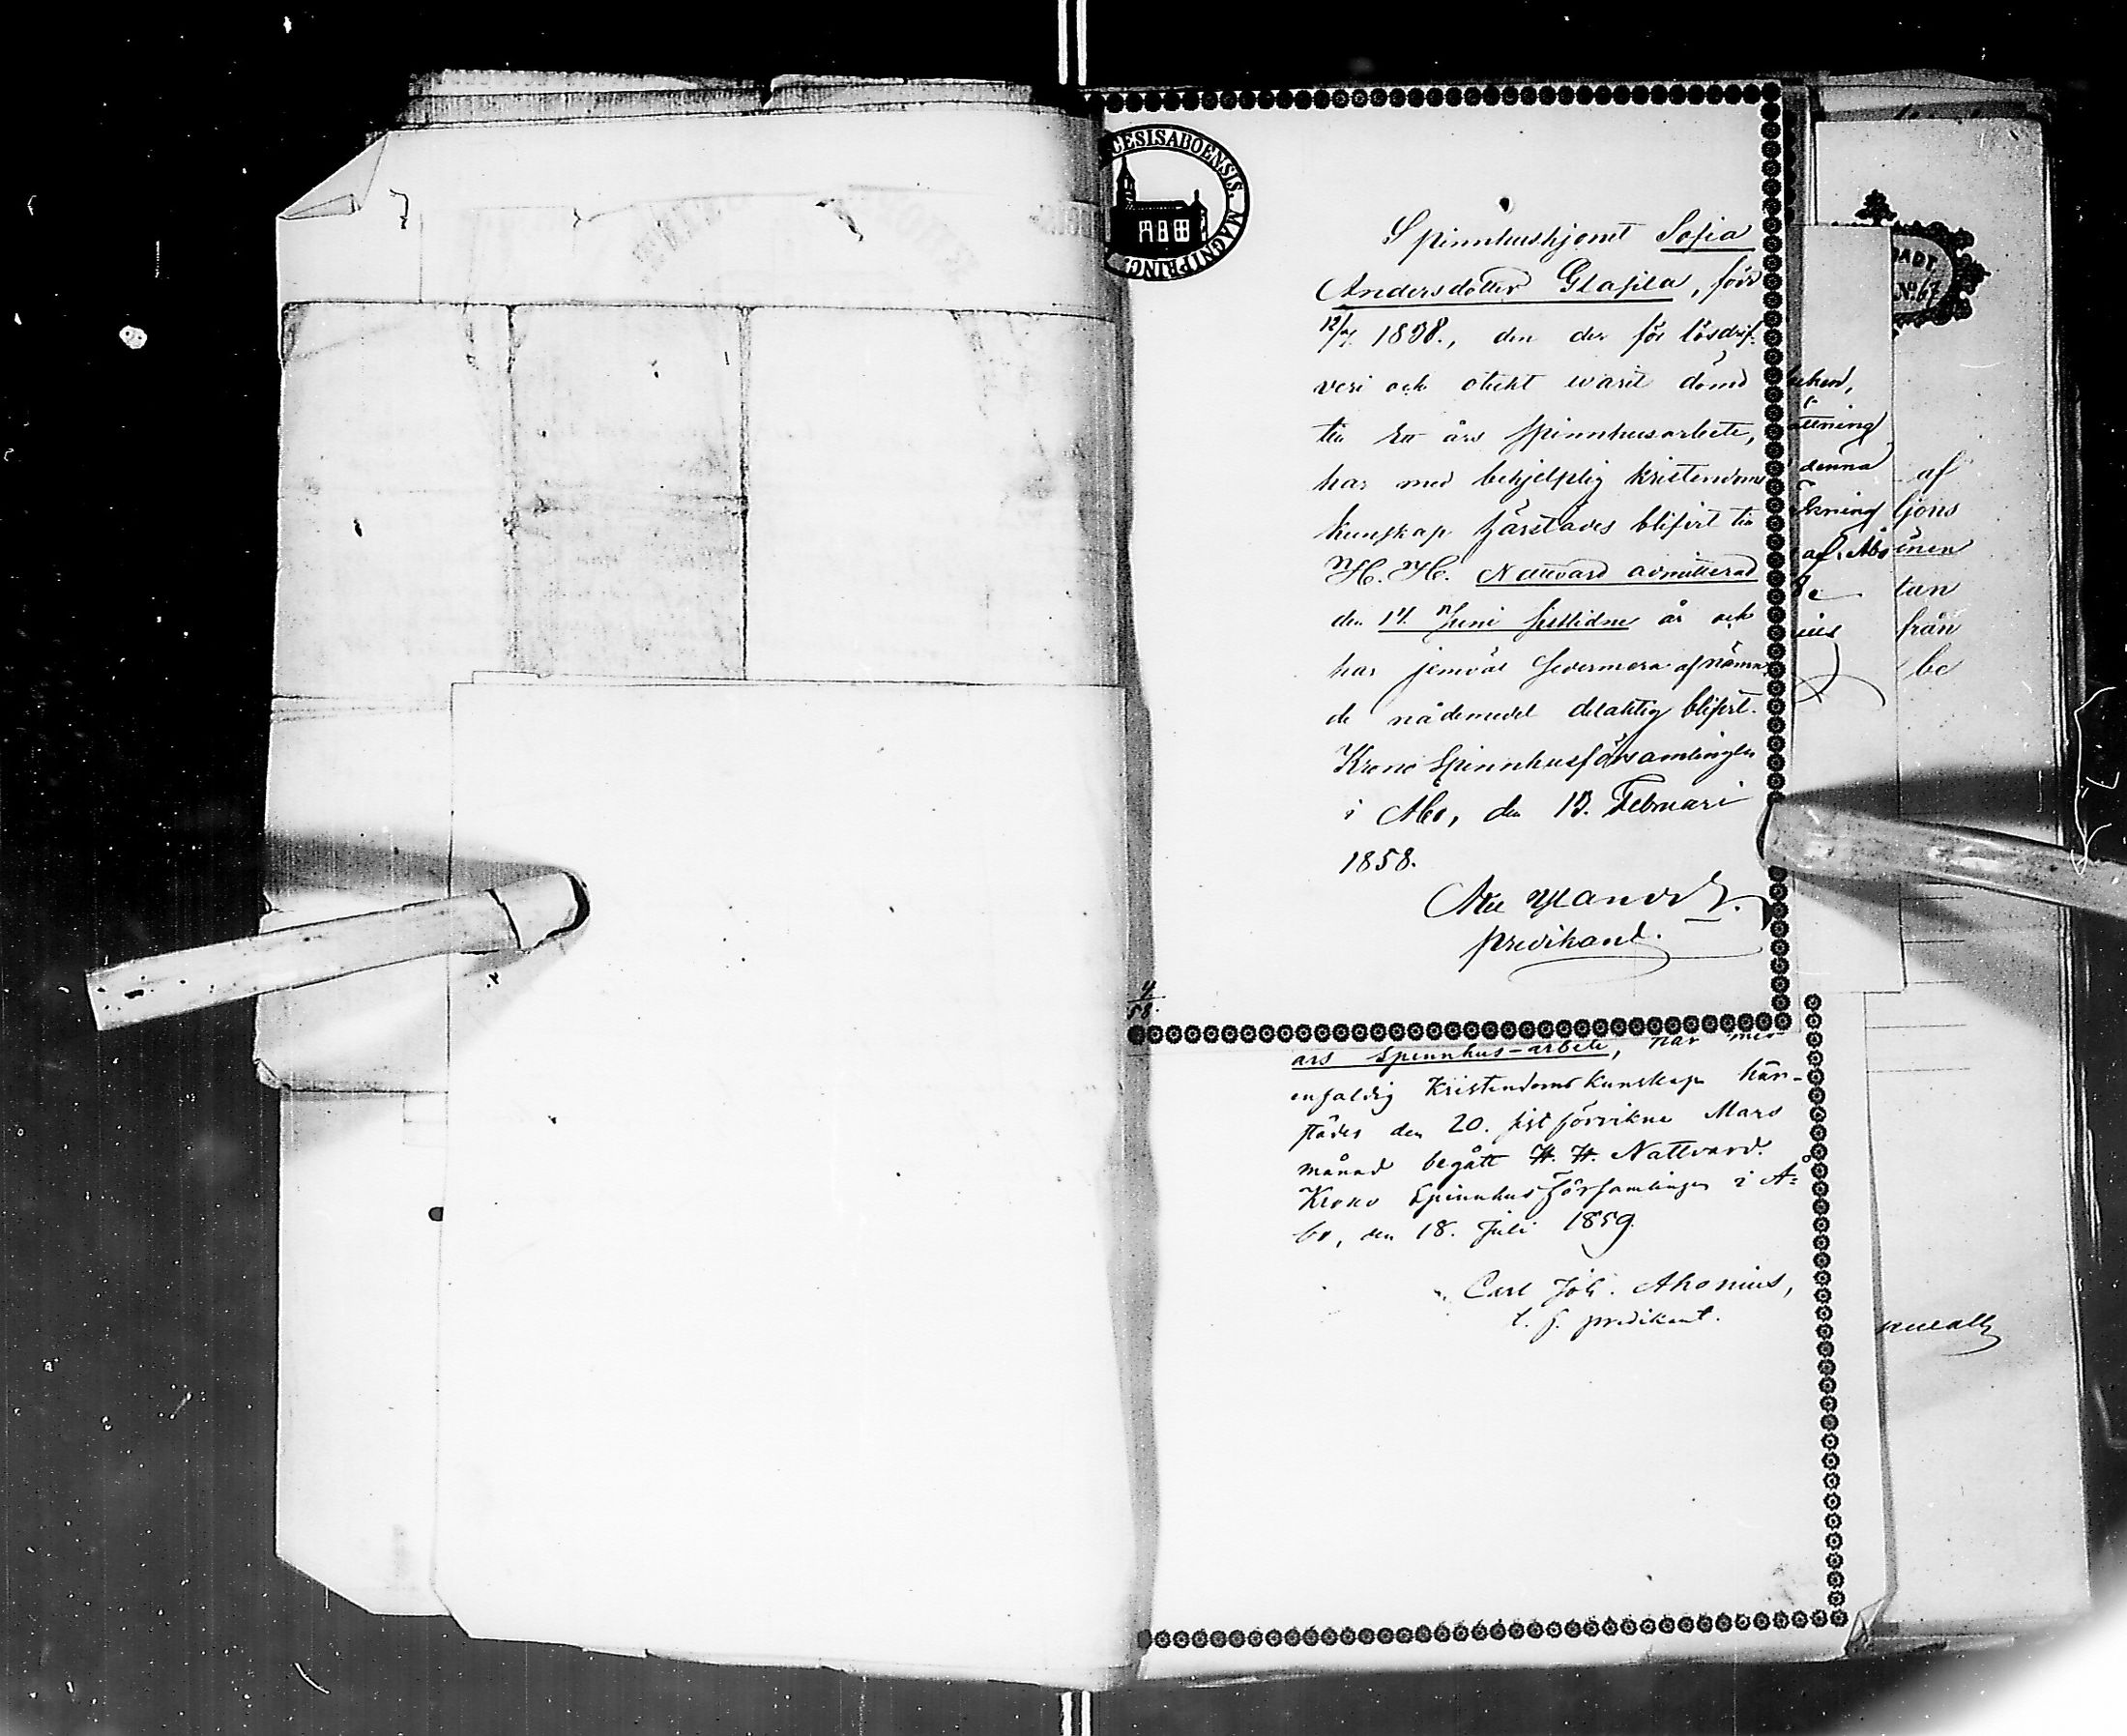 CESIS ABOENSIS. MAGNI PRINC
Spinnhushjonet Sofia
Andersdotter Glasila, född
12/7 1838., den der för lösdrif-
veri och otukt warit dömd
till ett års Spinnhusarbete,
har med behjelplig kristendoms
kunskap härstädes blifvit till
H. H. Nattvard admitterad
den 14. Juni sistlidne år och
har jemväl sedermera af nämn
de nådemedel delaktig blifvit.
Krono Spinnhusförsamlingen
i Åbo, den 13. Februari
1858.
predikant.
4
58.
års Spinnhus-arbete, har med
enfaldig Kristendomskunskap här-
städes den 20. sist förvikne Mars
månad begått H. H. Nattvard.
Krono Spinnhusförsamlingen i Å-
bo, den 18. Juli 1859.
Carl Joh. Ahonius,
t. f. predikant.
ADT.
No. 67
denna
af. Åbo
af
tan
från
be